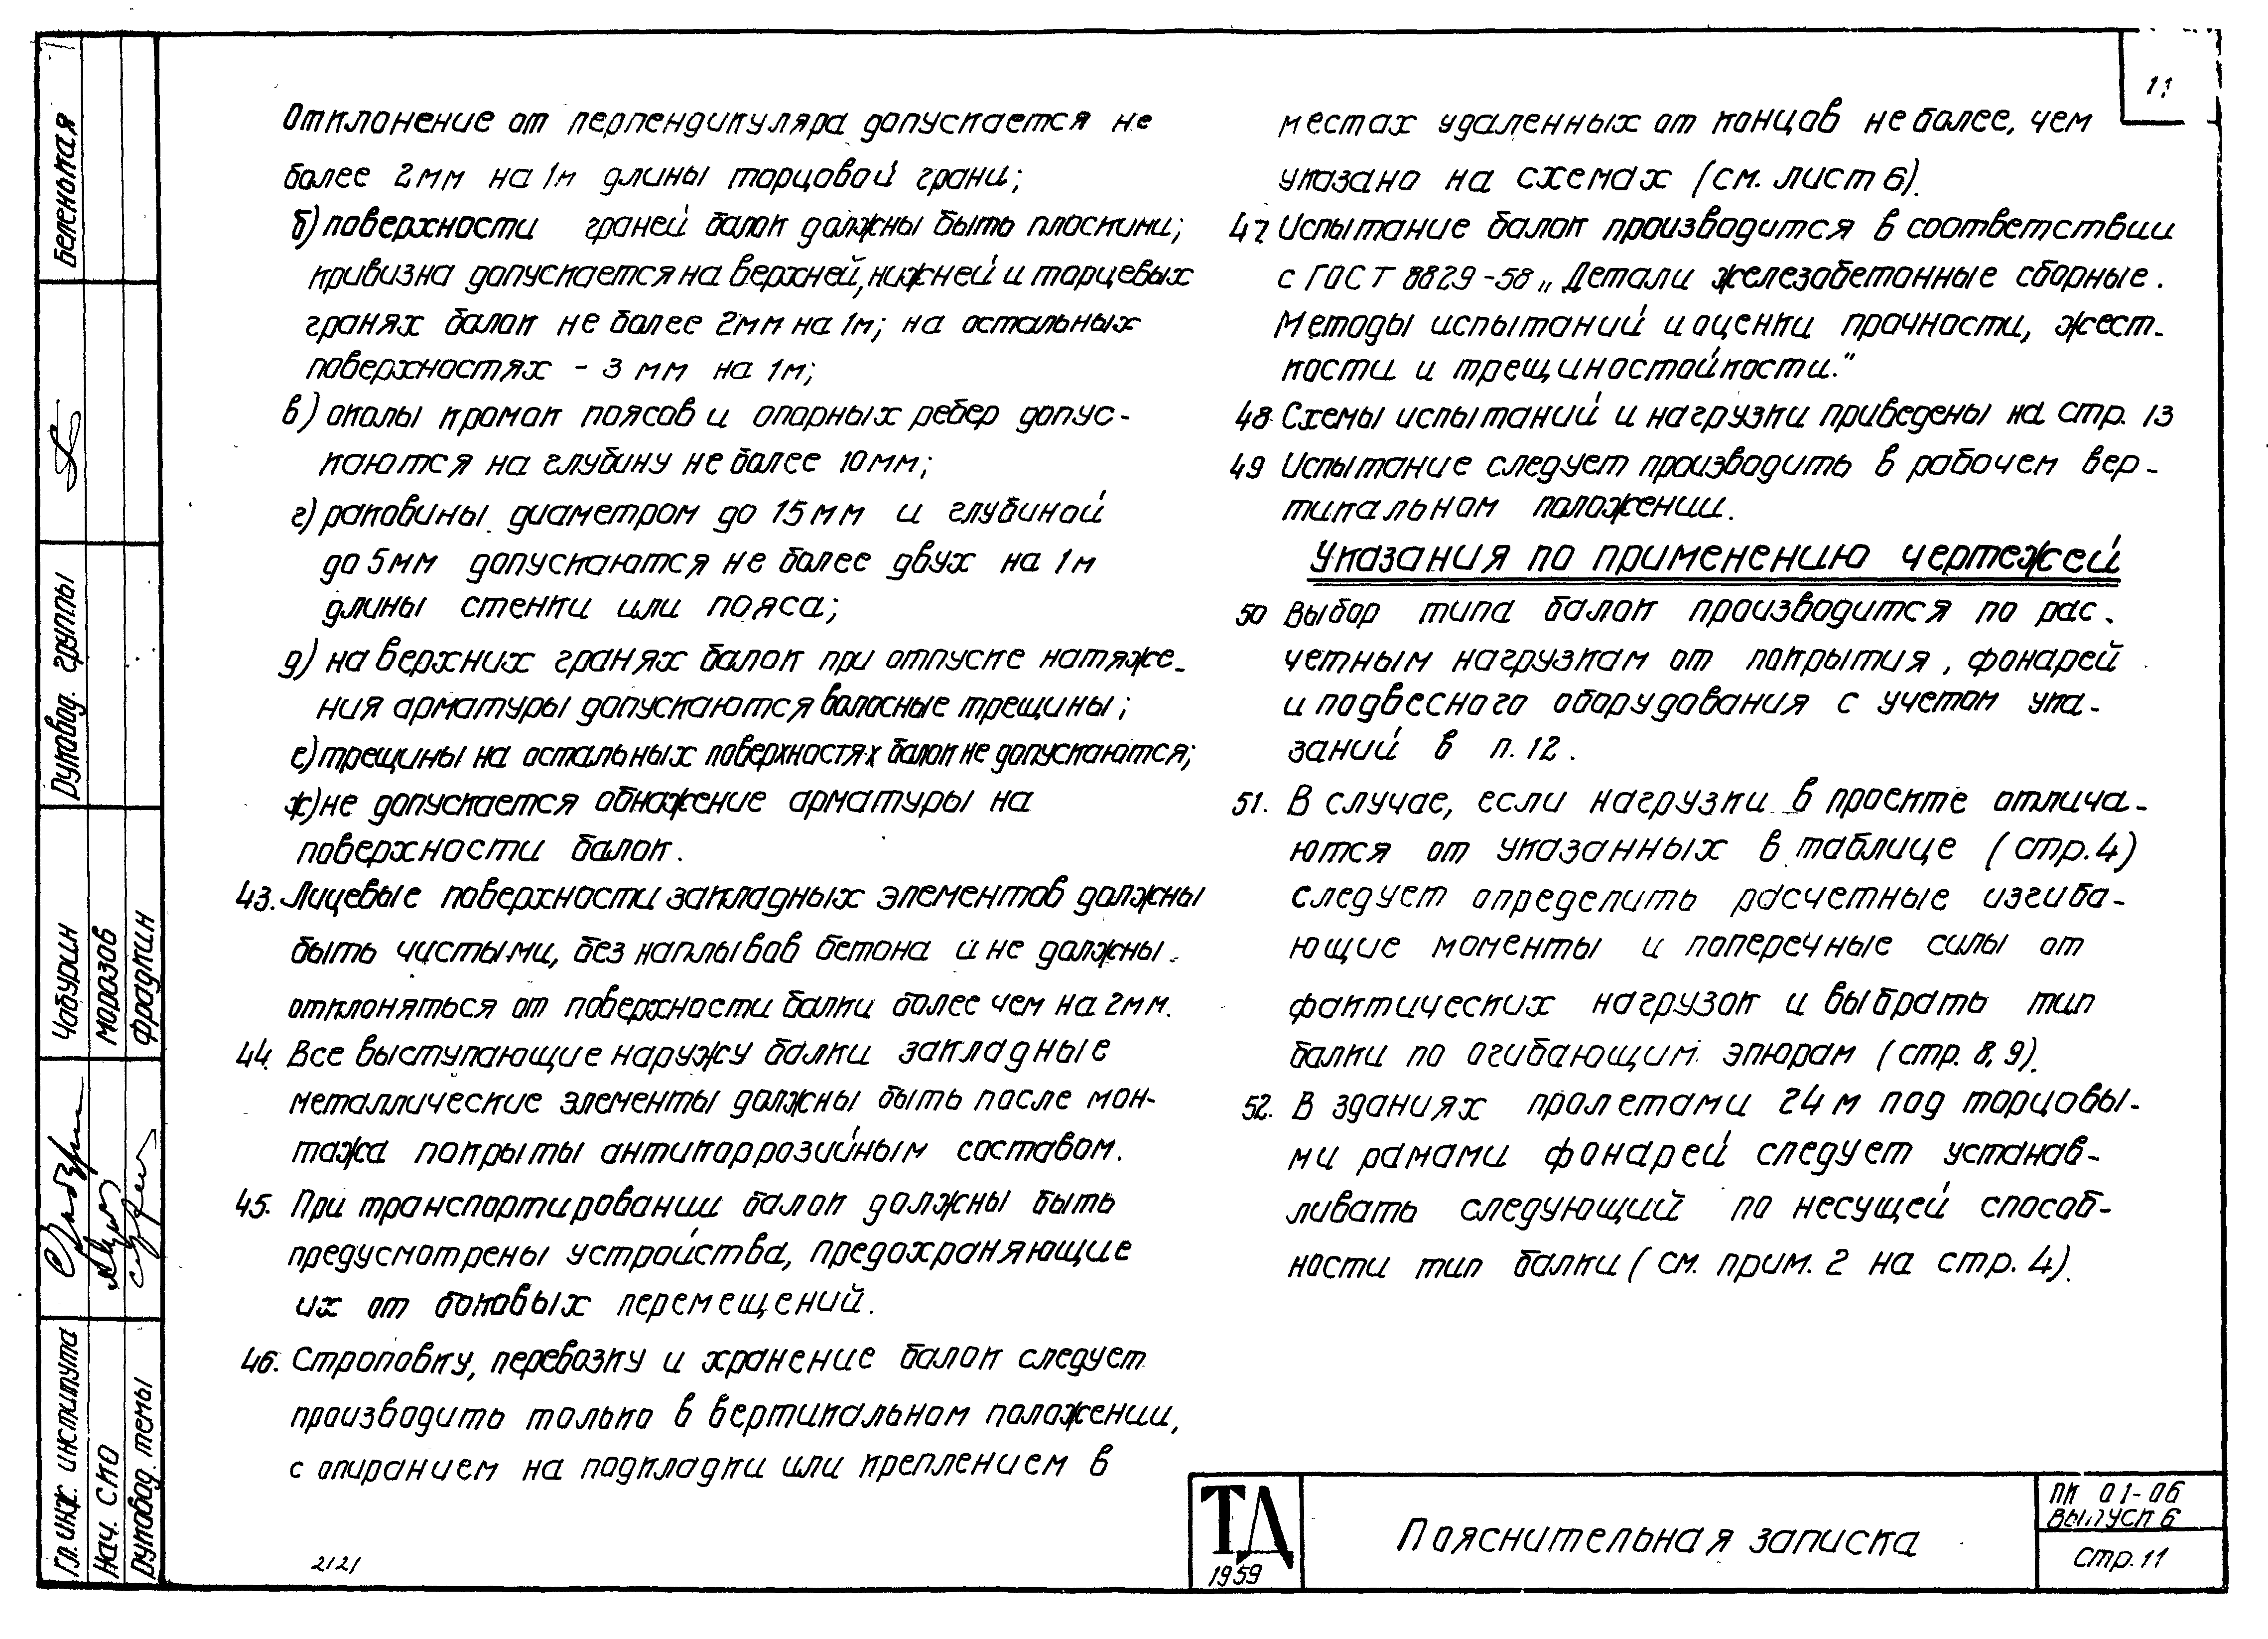 11
Отклонение от перпендикуляра допускается не
более 2мм на 1м длины торцовой грани;
б) поверхности граней балок должны быть плоскими;
кривизна допускается на верхней, нижней и торцевых
гранях балок не более 2мм на 1м; на остальных
поверхностях - 3 мм на 1м;
в) околы кромок поясов и опорных ребер допус-
каются на глубину не более 10мм;
г) раковины диаметром до 15мм и глубиной
до 5мм допускаются не более двух на 1м
длины стенки или пояса;
д) на верхних гранях балок при отпуске натяже-
ния арматуры допускаются волосные трещины;
е) трещины на остальных поверхностях балок не допускаются;
ж) не допускается обнажение арматуры на
поверхности балок.
43. Лицевые поверхности закладных элементов должны
быть чистыми, без наплывов бетона и не должны
отклоняться от поверхности балки более чем на 2мм.
44. Все выступающие наружу балки закладные
металлические элементы должны быть после мон-
тажа покрыты антикоррозийным составом.
45. При транспортировании балок должны быть
предусмотрены устройства, предохраняющие
их от боковых перемещений.
46. Строповку, перевозку и хранение балок следует
производить только в вертикальном положении,
с опиранием на подкладки или креплением в
местах удаленных от концов не более, чем
указано на схемах (см. лист 6).
47 Испытание балок производится в соответствии
с ГОСТ 8829-58 „Детали железобетонные сборные.
Методы испытаний и оценки прочности, жест-
кости и трещиностойкости."
48 Схемы испытаний и нагрузки приведены на стр. 13
49 Испытание следует производить в рабочем вер-
тикальном положении.
Указания по применению чертежей
50 Выбор типа балок производится по рас-
четным нагрузкам от покрытия, фонарей
и подвесного оборудования с учетом ука-
заний в п. 12.
51. В случае, если нагрузки в проекте отлича-
ются от указанных в таблице (стр. 4)
следует определить расчетные изгиба-
ющие моменты и поперечные силы от
фактических нагрузок и выбрать тип
балки по огибающим эпюрам (стр. 8, 9).
52. В зданиях пролетами 24м под торцовы-
ми рамами фонарей следует устанав-
ливать следующий по несущей способ-
ности тип балки (см. прим. 2 на стр. 4).
Гл. инж. института Чабурин Руковод. группы Беленькая
Нач. СКО Морозов
Руковод. темы Фрадкин
2121
ТД
1959
Пояснительная записка
ПК 01-06
Выпуск 6
Стр. 11